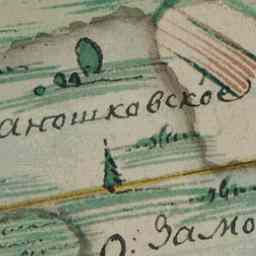 аношковское
О: Замо